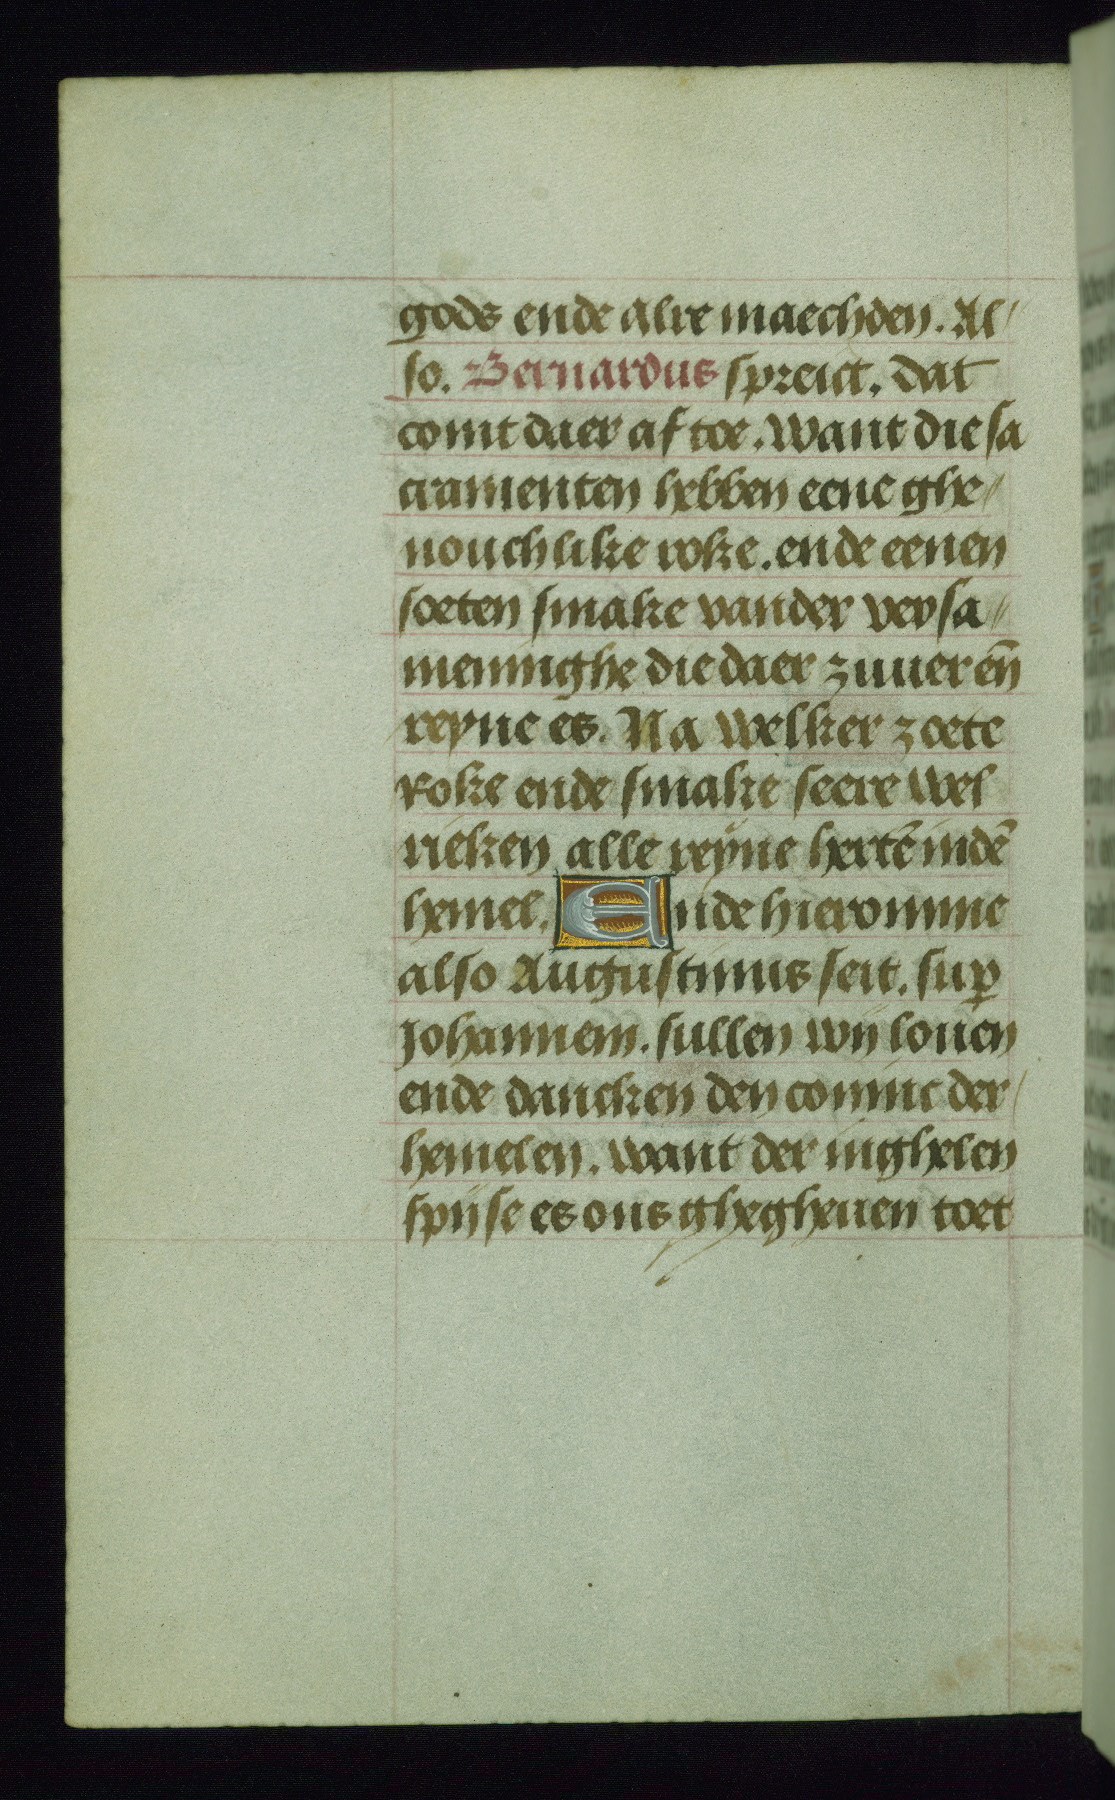 gods ende alre maechden. Al⸗
so. Bernardus spreict. dat
comt daer af toe. Want die sa
cramenten hebben eene ghe⸗
nouchlike roke. ende eenen
soeten smake vander versa⸗
meninghe die daer zuuer en̄
reyne es. Na welker zoete
roke ende smake seere wel
rieken alle reyne hertē indē
hemel. Ende hier omme
also Augustinus seit. sup̄
Johannem. sullen wij louen
ende dancken den coninc der
hemelen. want der inghelen
spijse es ons ghegheuen toet